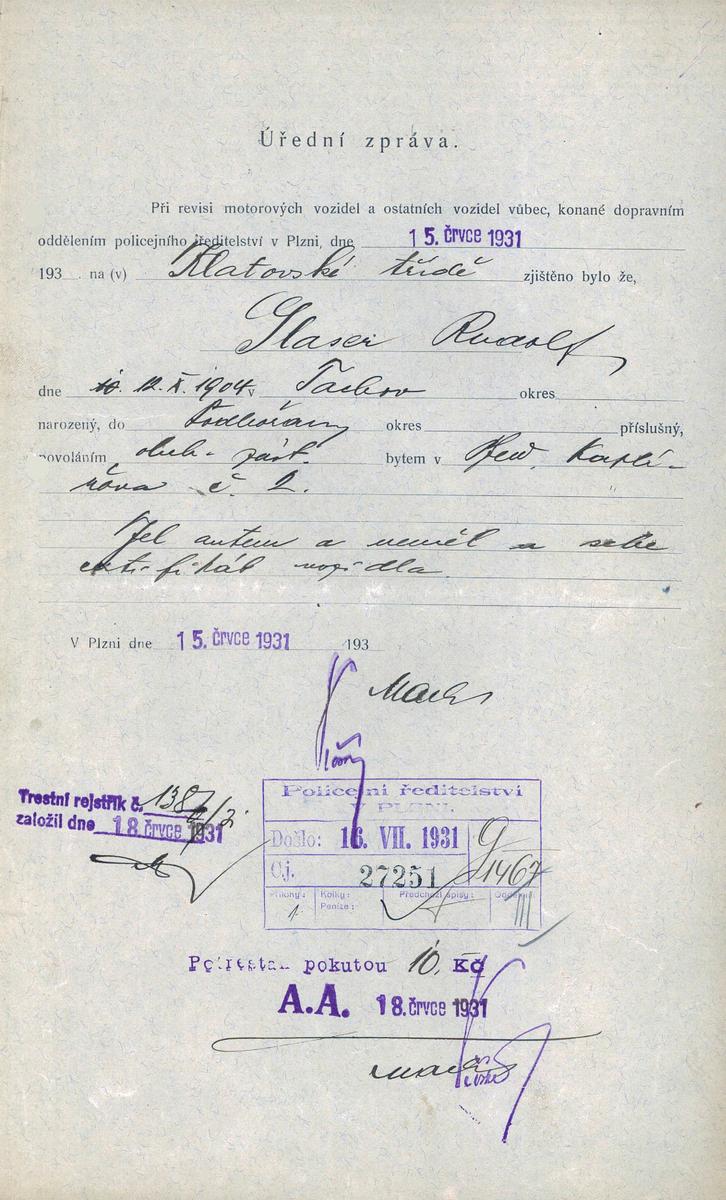 Úřední zpráva.
Při revisi motorových vozidel a ostatních vozidel vůbec, konané dopravním
oddělením policejního ředitelství v Plzni, dne 15. črvce 1931
193 na (v) Klatovské třídě zjištěno bylo že,
Glaser Rudolf
dne 12. X. 1904 v Tachov okres
narozený, do Podbořany okres příslušný,
povoláním obch. zást. bytem v
č. 2.
Jel autem a neměl u sebe
certifikát vozidla.
V Plzni dne 15. črvce 1931 193
Trestní rejstřík č.
založil dne 18. črvce 1931
Policejní ředitelství
V PLZNI.
Došlo: 16. VII. 1931
Čj. 27251
Přílohy: 1 Kolky: Peníze: Předchozí spisy: Oddělení: III
Potrestán pokutou 10. Kč
A.A. 18. črvce 1931